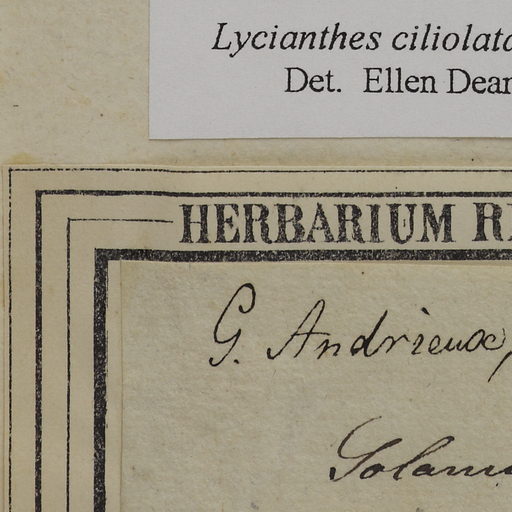 Lycianthes ciliolata
Det. Ellen Dean
HERBARIUM
G. Andrieux,